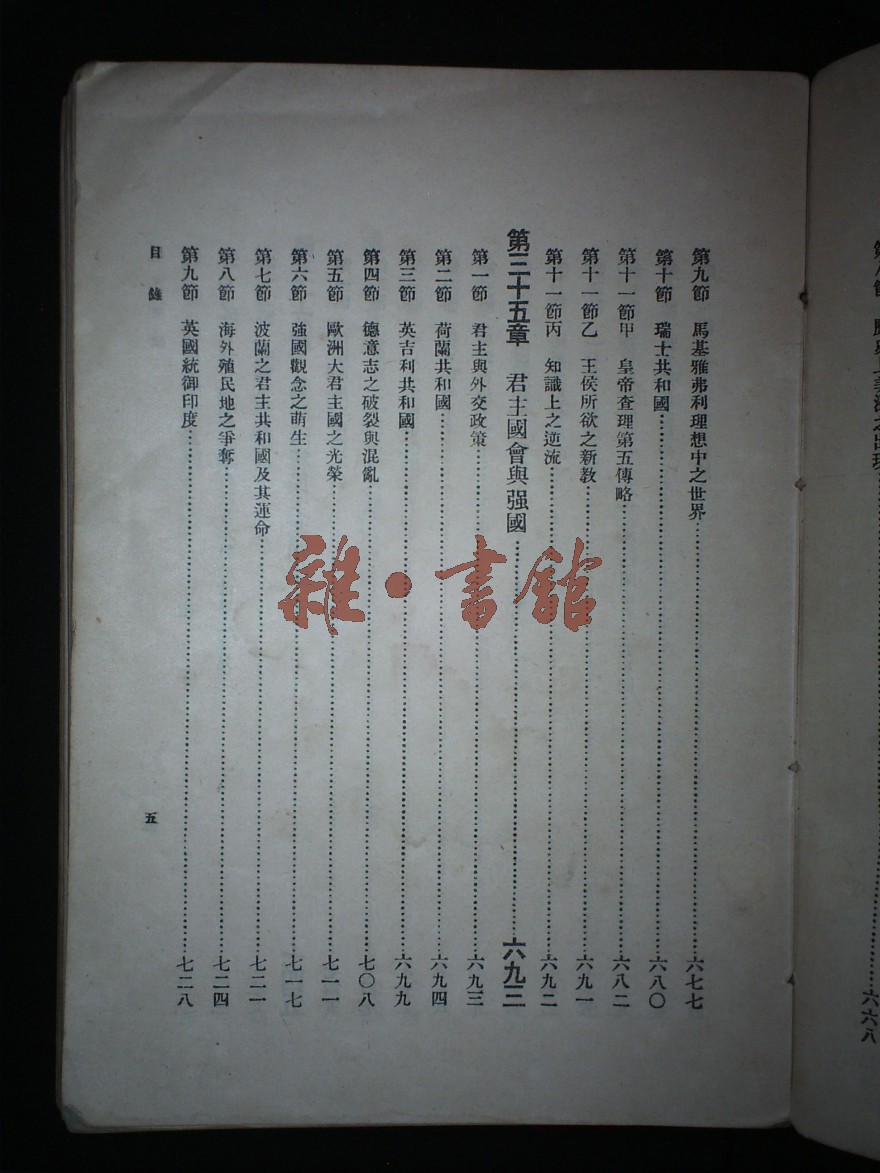 第九節 馬基雅弗利理想中之世界……六七七
第十節 瑞士共和國……六八〇
第十一節甲 皇帝查理第五傳略……六八二
第十一節乙 王侯所欲之新教……六九一
第十一節丙 知識上之逆流……六九二
第三十五章 君主國會與强國……六九三
第一節 君主與外交政策……六九三
第二節 荷蘭共和國……六九四
第三節 英吉利共和國……六九九
第四節 德意志之破裂與混亂……七〇八
第五節 歐洲大君主國之光榮……七一一
第六節 強國觀念之萌生……七一七
第七節 波蘭之君主共和國及其運命……七二一
第八節 海外殖民地之爭奪……七二四
第九節 英國統御印度……七二八
目錄
五
雜·書館
六六八